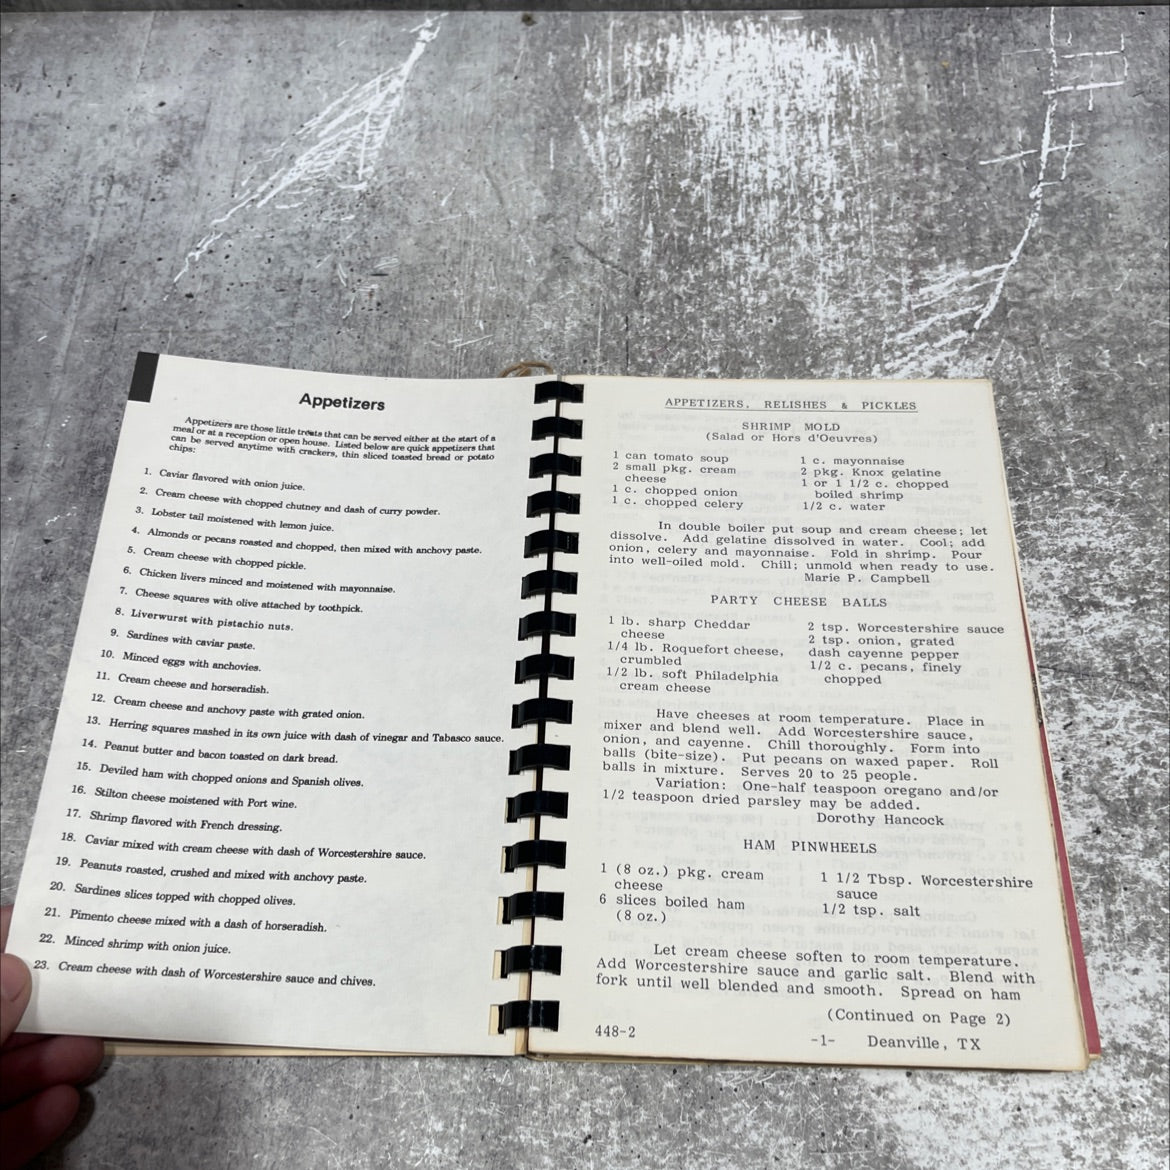 Appetizers
Appetizers are those little treats that can be served either at the start of a
meal or at a reception or open house. Listed below are quick appetizers that
can be served anytime with crackers, thin sliced toasted bread or potato
chips:
1. Caviar flavored with onion juice.
2. Cream cheese with chopped chutney and dash of curry powder.
3. Lobster tail moistened with lemon juice.
4. Almonds or pecans roasted and chopped, then mixed with anchovy paste.
5. Cream cheese with chopped pickle.
6. Chicken livers minced and moistened with mayonnaise.
7. Cheese squares with olive attached by toothpick.
8. Liverwurst with pistachio nuts.
9. Sardines with caviar paste.
10. Minced eggs with anchovies.
11. Cream cheese and horseradish.
12. Cream cheese and anchovy paste with grated onion.
13. Herring squares mashed in its own juice with dash of vinegar and Tabasco sauce.
14. Peanut butter and bacon toasted on dark bread.
15. Deviled ham with chopped onions and Spanish olives.
16. Stilton cheese moistened with Port wine.
17. Shrimp flavored with French dressing.
18. Caviar mixed with cream cheese with dash of Worcestershire sauce.
19. Peanuts roasted, crushed and mixed with anchovy paste.
20. Sardines slices topped with chopped olives.
21. Pimento cheese mixed with a dash of horseradish.
22. Minced shrimp with onion juice.
23. Cream cheese with dash of Worcestershire sauce and chives.
APPETIZERS, RELISHES & PICKLES
SHRIMP MOLD
(Salad or Hors d'Oeuvres)
1 can tomato soup
2 small pkg. cream
cheese
1 c. chopped onion
1 c. chopped celery
1 c. mayonnaise
2 pkg. Knox gelatine
1 or 1 1/2 c. chopped
boiled shrimp
1/2 c. water
In double boiler put soup and cream cheese; let
dissolve. Add gelatine dissolved in water. Cool; add
onion, celery and mayonnaise. Fold in shrimp. Pour
into well-oiled mold. Chill; unmold when ready to use.
Marie P. Campbell
PARTY CHEESE BALLS
1 lb. sharp Cheddar
cheese
1/4 lb. Roquefort cheese,
crumbled
1/2 lb. soft Philadelphia
cream cheese
2 tsp. Worcestershire sauce
2 tsp. onion, grated
dash cayenne pepper
1/2 c. pecans, finely
chopped
Have cheeses at room temperature. Place in
mixer and blend well. Add Worcestershire sauce,
onion, and cayenne. Chill thoroughly. Form into
balls (bite-size). Put pecans on waxed paper. Roll
balls in mixture. Serves 20 to 25 people.
Variation: One-half teaspoon oregano and/or
1/2 teaspoon dried parsley may be added.
Dorothy Hancock
HAM PINWHEELS
1 (8 oz.) pkg. cream
cheese
6 slices boiled ham
(8 oz.)
1 1/2 Tbsp. Worcestershire
sauce
1/2 tsp. salt
Let cream cheese soften to room temperature.
Add Worcestershire sauce and garlic salt. Blend with
fork until well blended and smooth. Spread on ham
(Continued on Page 2)
448-2
-1- Deanville, TX